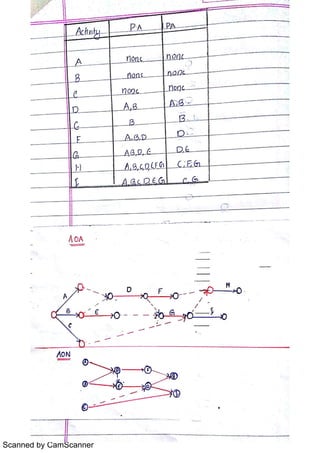 Activity PA PA
A none none
B none none
C none none
D A,B A,B
C B B
F A,B,D D
G A,B,D,E D,E
H A,B,C,D,E,F,G C,F,G
I A,B,C,D,E,G C,G
AOA
A D F H
B E G I
C
AON
A D F H
B E G I
C
Scanned by CamScanner